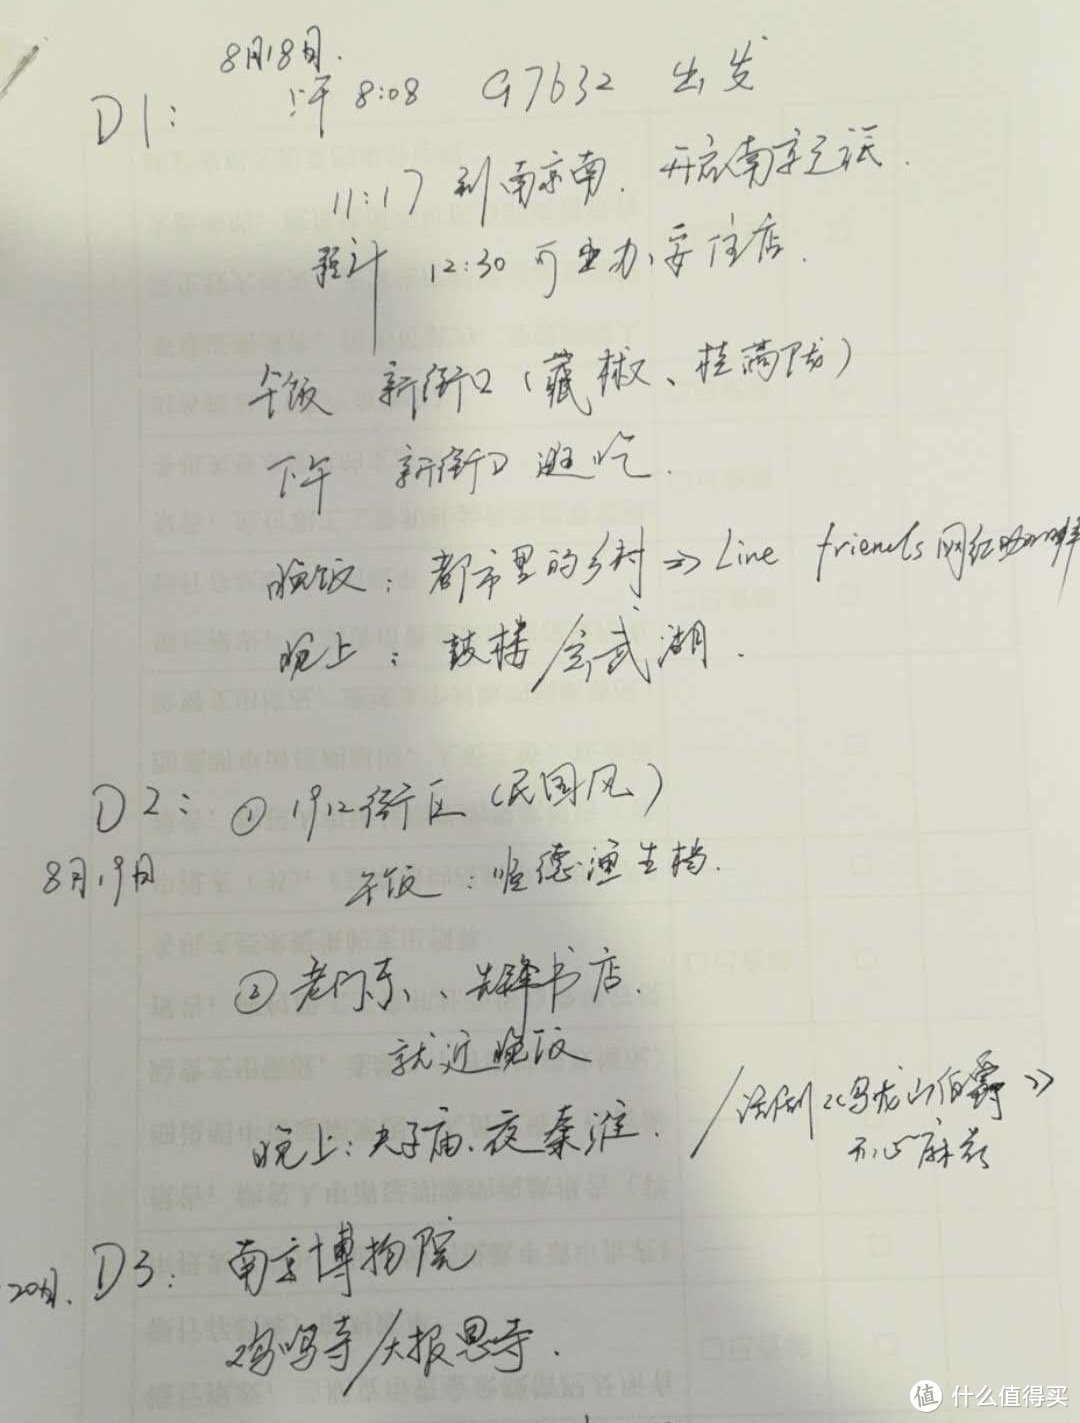 8月18日.
D1: 上午 8:08 G7632 出发
11:17 到南京南. 开启南京之旅.
预计 12:30 可办妥住店.
午饭 新街口(藏椒、桂满陇)
下午 新街口 逛吃.
晚饭: 都市里的乡村 => Line friends 网红咖啡
晚上: 鼓楼/玄武湖.
D2: ① 1912街区(民国风)
8月19日
午饭: 顺德渔生档.
② 老门东、先锋书店.
就近晚饭
晚上: 夫子庙、夜秦淮. /话剧《乌龙山伯爵》
开心麻花
20日. D3: 南京博物院
鸡鸣寺/大报恩寺.
值 什么值得买